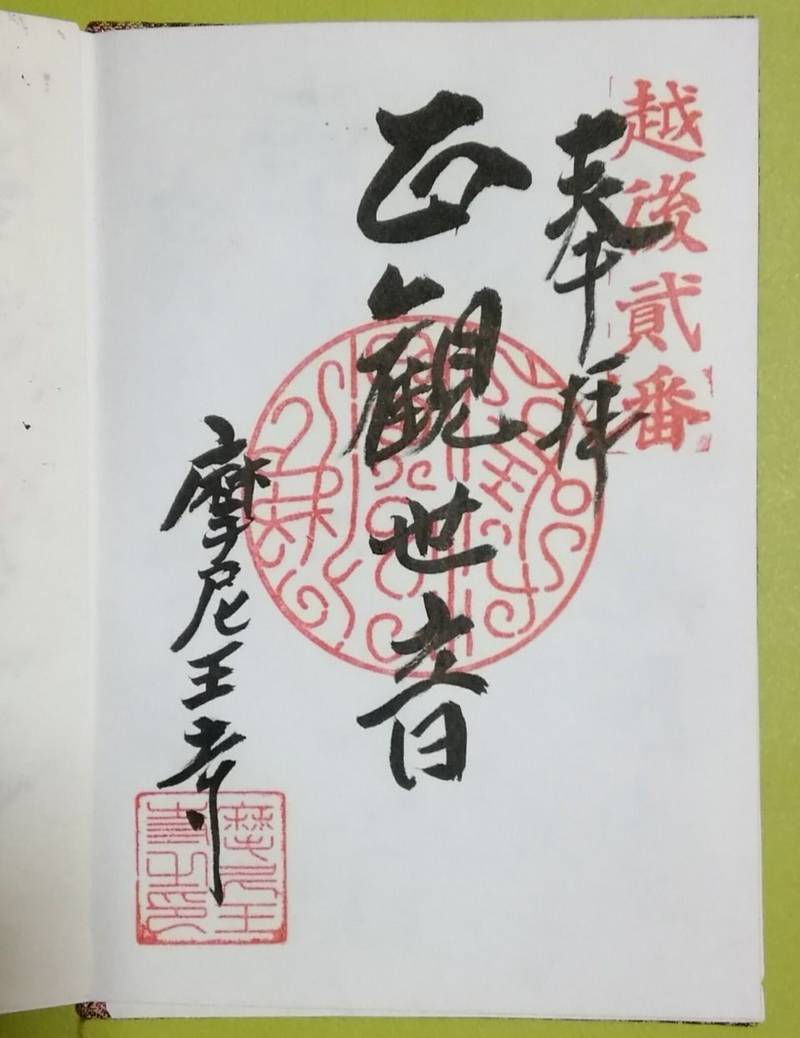 越後貳番
奉拝
正観世音
摩尼王寺
摩尼王
寺之印